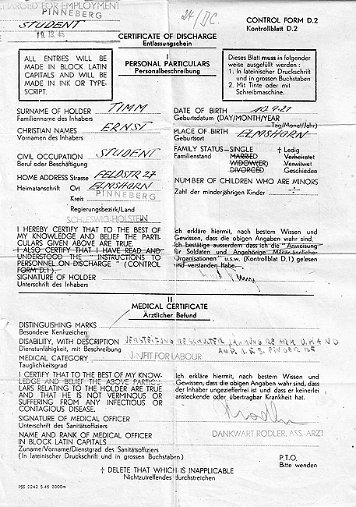 FOR EMPLOYMENT
PINNEBERG
STUDENT
CONTROL FORM D.2
Kontrollblatt D.2
CERTIFICATE OF DISCHARGE
Entlassungschein
ALL ENTRIES WILL BE
MADE IN BLOCK LATIN
CAPITALS AND WILL BE
MADE IN INK OR TYPE-
SCRIPT.
I
PERSONAL PARTICULARS
Personalbeschreibung
Dieses Blatt muss in folgender
weise ausgefüllt werden :
1. In lateinischer Druckschrift
und in grossen Buchstaben.
2. Mit Tinte oder mit
Schreibmaschine.
SURNAME OF HOLDER TIMM
Familienname des Inhabers
DATE OF BIRTH
Geburtsdatum (DAY/MONTH/YEAR
Tag/Monat/Jahr)
CHRISTIAN NAMES ERNST
Vornamen des Inhabers
PLACE OF BIRTH ELMSHORN
Geburtsort
CIVIL OCCUPATION STUDENT
Beruf oder Beschäftigung
FAMILY STATUS—SINGLE † Ledig
Familienstand MARRIED Verheiratet
WIDOW(ER) Verwitwet
DIVORCED Geschieden
HOME ADDRESS Strasse FELDSTR 27
Heimatanschrift Ort ELMSHORN
Kreis PINNEBERG
Regierungsbezirk/Land
SCHLESWIG-HOLSTEIN
NUMBER OF CHILDREN WHO ARE MINORS
Zahl der minderjährigen Kinder
I HEREBY CERTIFY THAT TO THE BEST OF
MY KNOWLEDGE AND BELIEF THE PARTI-
CULARS GIVEN ABOVE ARE TRUE.
I ALSO CERTIFY THAT I HAVE READ AND
UNDERSTOOD THE "INSTRUCTIONS TO
PERSONNEL ON DISCHARGE" (CONTROL
FORM D.1).
SIGNATURE OF HOLDER
Unterschrift des Inhabers
Ich erkläre hiermit, nach bestem Wissen und
Gewissen, dass die obigen Angaben wahr sind.
Ich bestätige ausserdem dass ich die "Anweisung
für Soldaten und Angehörige Militär-ähnlicher
Organisationen" u.s.w. (Kontrollblatt D.1) gelesen
und verstanden habe.
II
MEDICAL CERTIFICATE
Ärztlicher Befund
DISTINGUISHING MARKS
Besondere Kennzeichen
DISABILITY, WITH DESCRIPTION
Dienstunfähigkeit, mit Beschreibung
MEDICAL CATEGORY UNFIT FOR LABOUR
Tauglichkeitsgrad
I CERTIFY THAT TO THE BEST OF MY KNOW-
LEDGE AND BELIEF THE ABOVE PARTICU-
LARS RELATING TO THE HOLDER ARE TRUE
AND THAT HE IS NOT VERMINOUS OR
SUFFERING FROM ANY INFECTIOUS OR
CONTAGIOUS DISEASE.
Ich erkläre hiermit, nach bestem Wissen und
Gewissen, dass die obigen Angaben wahr sind, dass
der Inhaber ungezieferfrei ist und dass er keinerlei
ansteckende oder übertragbare Krankheit hat.
SIGNATURE OF MEDICAL OFFICER
Unterschrift des Sanitätsoffiziers
NAME AND RANK OF MEDICAL OFFICER
IN BLOCK LATIN CAPITALS
DANKWART RODLER, ASS. ARZT
Zuname/Vorname/Dienstgrad des Sanitätsoffiziers
(In lateinischer Druckschrift und in grossen Buchstaben)
P.T.O.
Bitte wenden
† DELETE THAT WHICH IS INAPPLICABLE
Nichtzutreffendes durchstreichen
PSS 0242 5.45 2000m